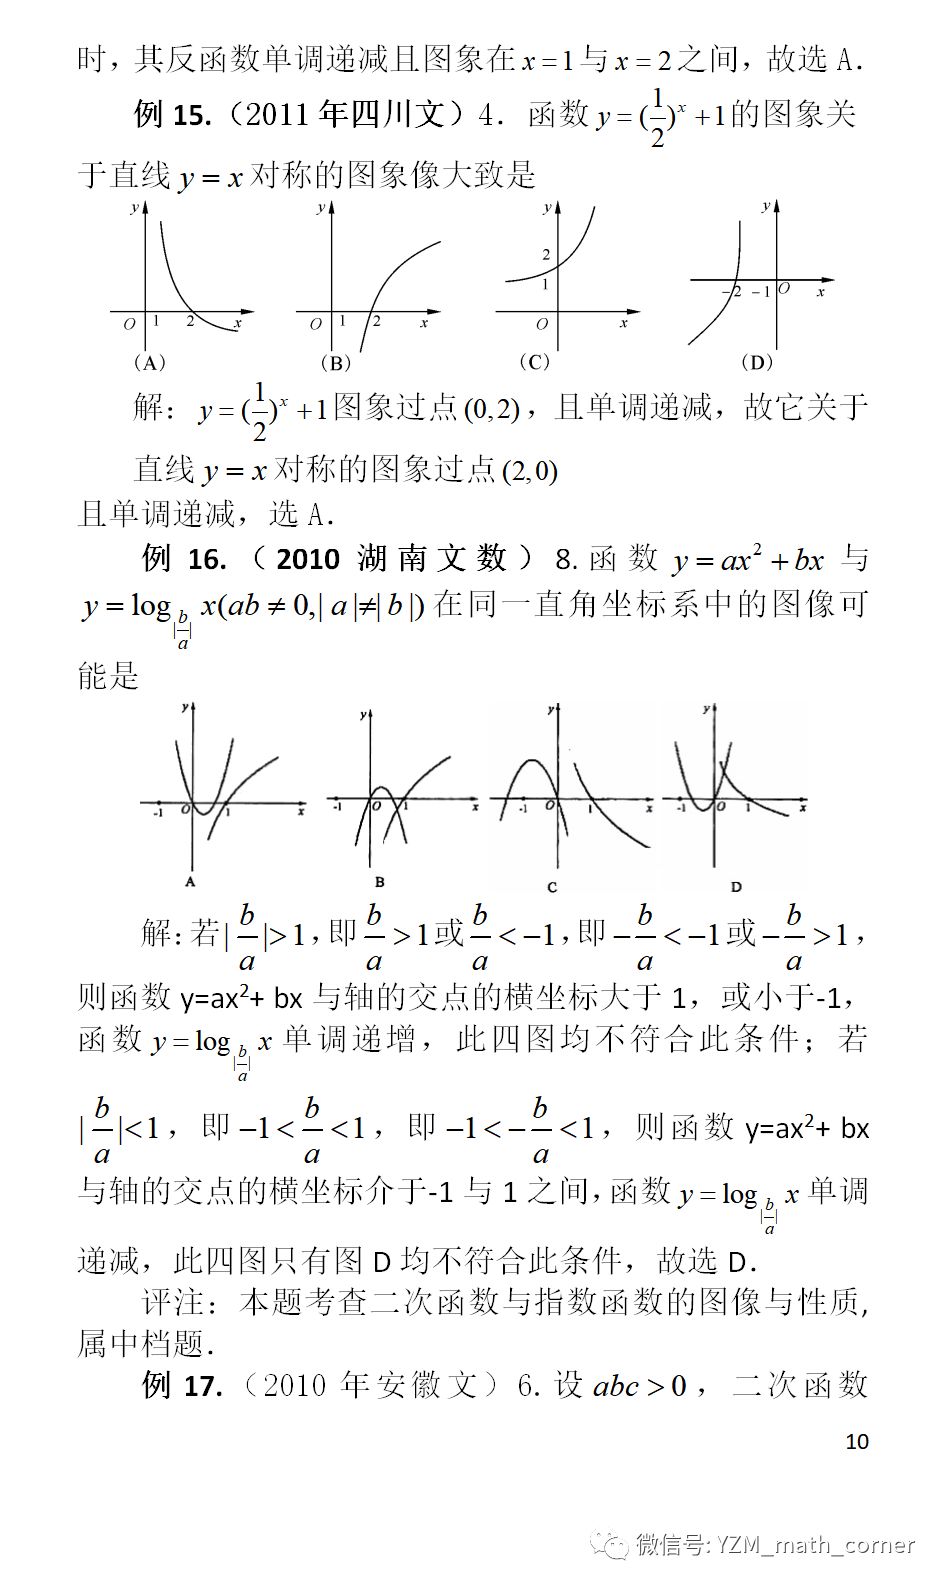 时，其反函数单调递减且图象在 x=1 与 x=2 之间，故选 A．
例 15.（2011 年四川文）4．函数 y=(1/2)^x+1 的图象关
于直线 y=x 对称的图象像大致是
y y y y
2 1
-2 -1 O x
O 1 2 x O 1 2 x O x
(A) (B) (C) (D)
解：y=(1/2)^x+1 图象过点 (0,2)，且单调递减，故它关于
直线 y=x 对称的图象过点 (2,0)
且单调递减，选 A．
例 16.（2010 湖南文数）8.函数 y=ax²+bx 与
y=log_{|b/a|} x(ab≠0,|a|≠|b|) 在同一直角坐标系中的图像可
能是
y y y y
-1 O 1 x -1 O 1 x -1 O 1 x -1 O 1 x
A B C D
解：若|b/a|>1，即 b/a>1 或 b/a<-1，即 -b/a<-1 或 -b/a>1，
则函数 y=ax²+ bx 与轴的交点的横坐标大于 1，或小于-1，
函数 y=log_{|b/a|} x 单调递增，此四图均不符合此条件；若
|b/a|<1，即 -1<b/a<1，即 -1<-b/a<1，则函数 y=ax²+ bx
与轴的交点的横坐标介于-1 与 1 之间，函数 y=log_{|b/a|} x 单调
递减，此四图只有图 D 均不符合此条件，故选 D．
评注：本题考查二次函数与指数函数的图像与性质，
属中档题．
例 17.（2010 年安徽文）6.设 abc>0，二次函数
10
微信号: YZM_math_corner